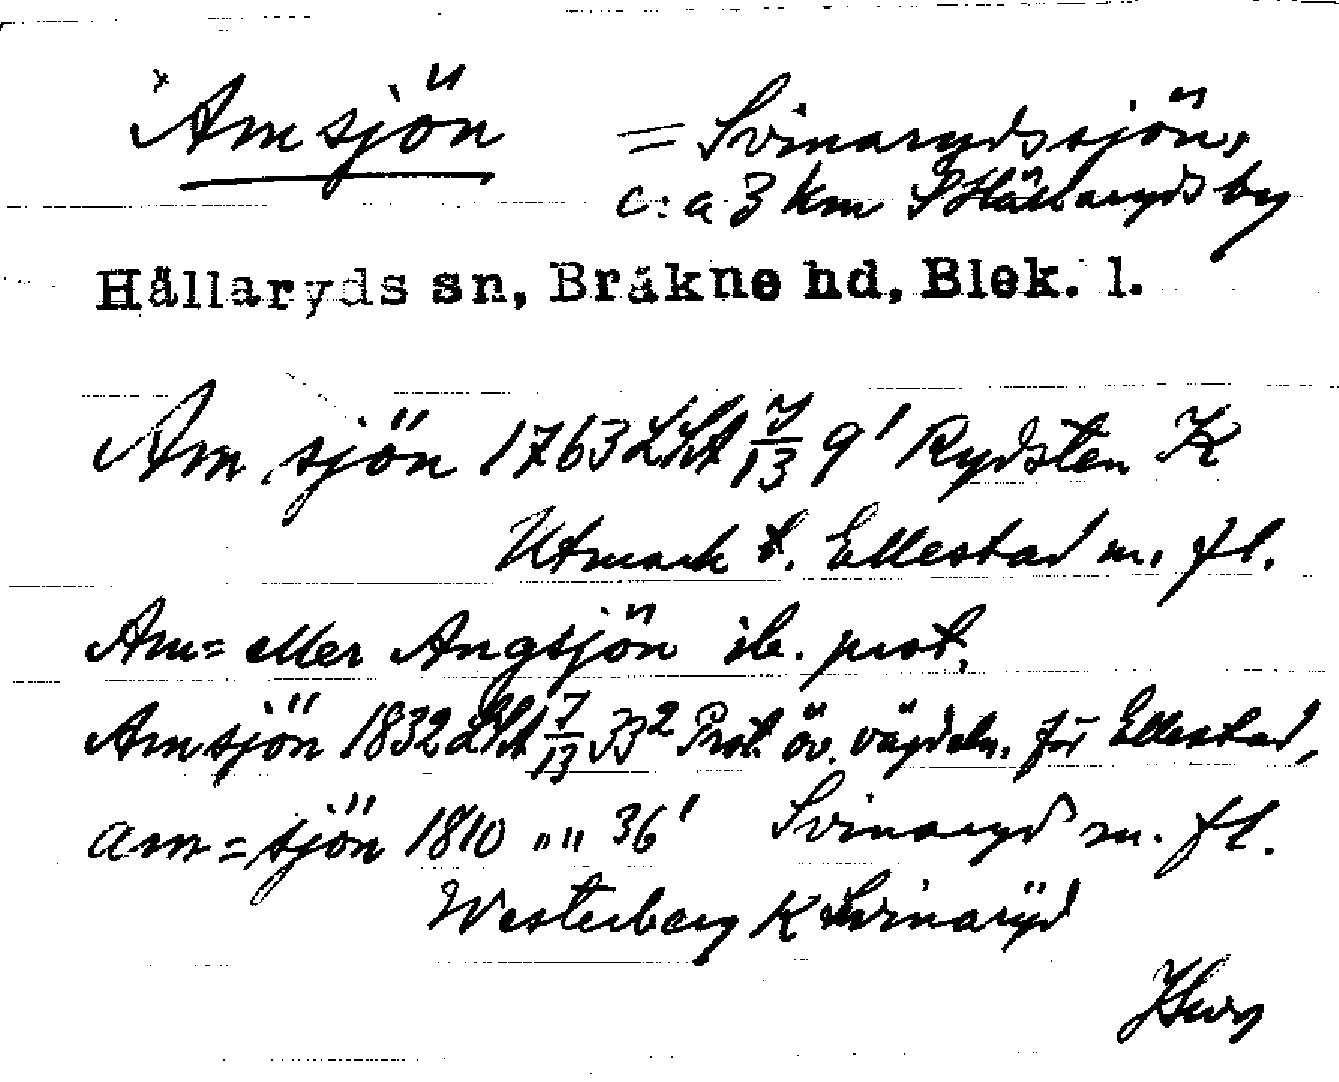 *Amsjön = Svinarydssjön,
c:a 3 km S Hällaryds by
Hällaryds sn, Bräkne hd, Blek. l.
Am sjön 1763 LSA 7/13 9¹ Rydsten K
Utmark t. Ellestad m. fl.
Am= eller Angsjön ib. prot.
Amsjön 1832 LSA 7/13 33² Prot. öv. vägdeln. för Ellestad,
am=sjön 1810 " " 36¹ Svinaryd m. fl.
Westerberg K Svinarÿd